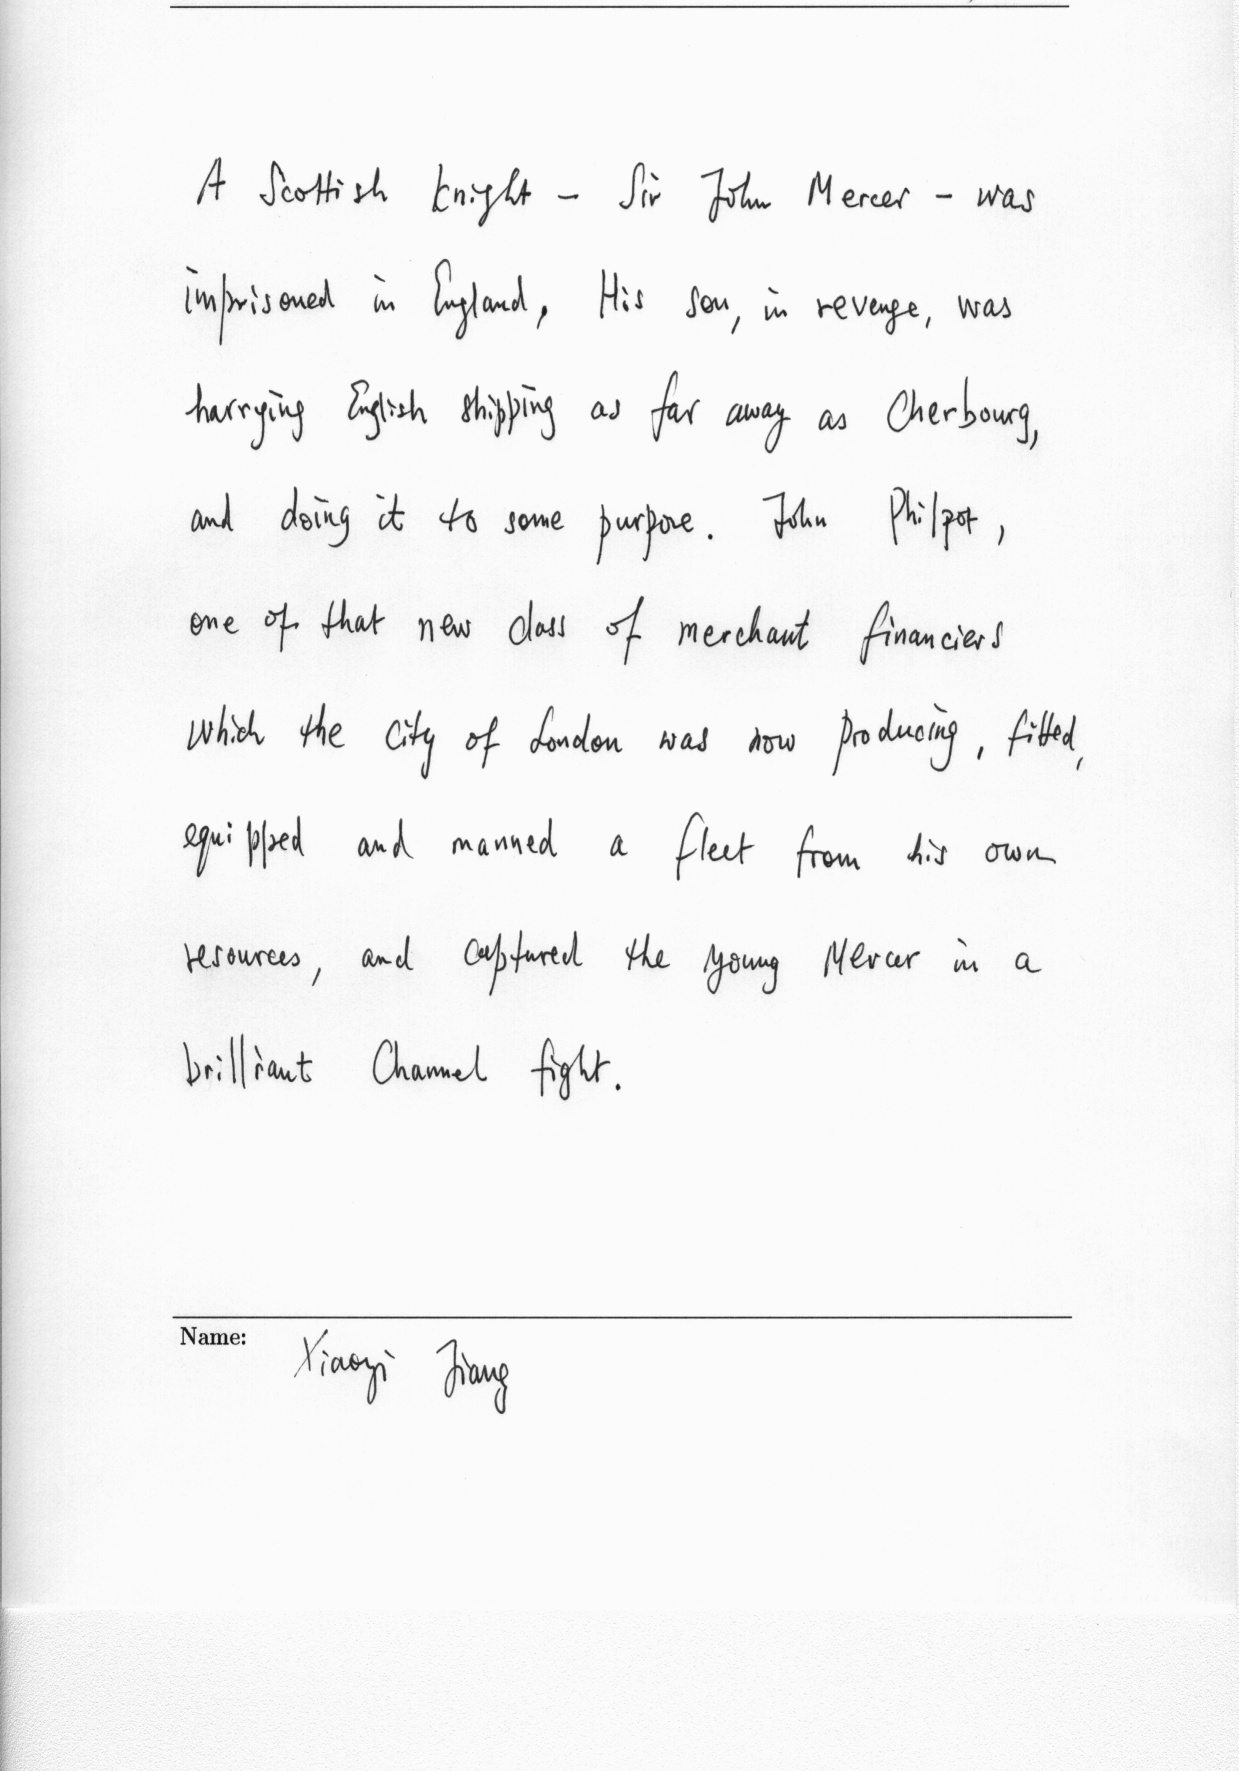 A Scottish knight - Sir John Mercer - was
imprisoned in England, His son, in revenge, was
harrying English shipping as far away as Cherbourg,
and doing it to some purpose. John Philpot,
one of that new class of merchant financiers
which the city of London was now producing, fitted,
equipped and manned a fleet from his own
resources, and captured the young Mercer in a
brilliant Channel fight.
Name: Xiaoyi Jiang